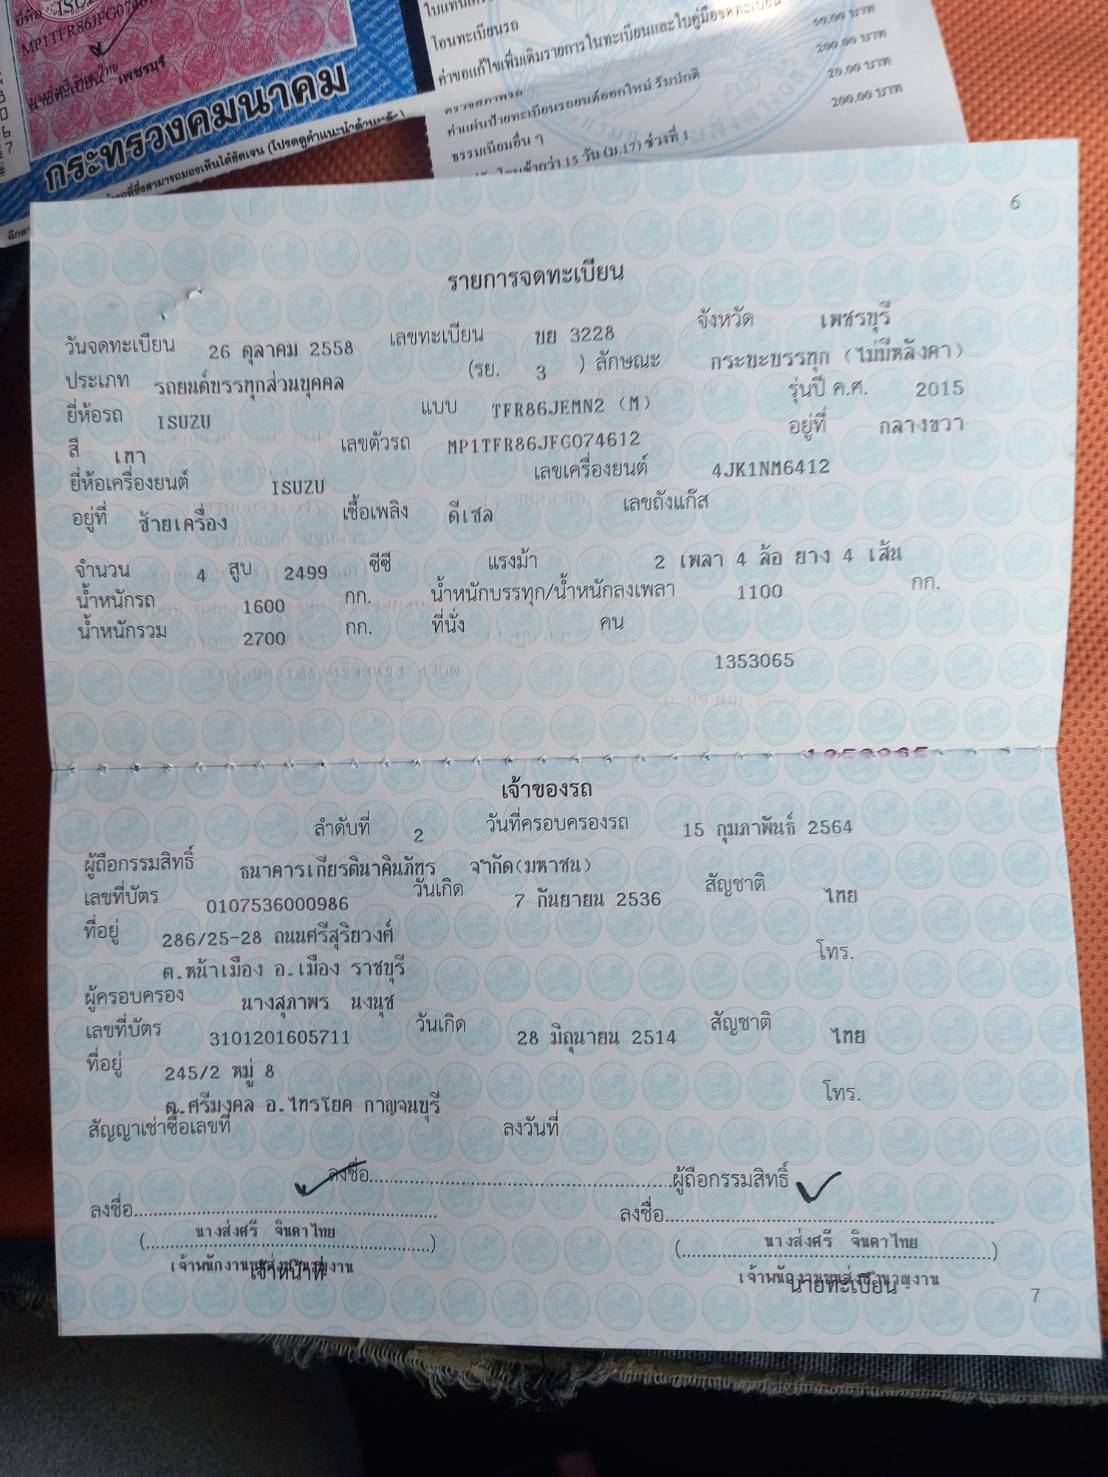 กระทรวงคมนาคม
MP1TFR86JFG0746
นายทะเบียน เพชรบุรี
โอนทะเบียนรถ
ค่าขอแก้ไขเพิ่มเติมรายการในทะเบียนและใบคู่มือจดทะเบียน 50.00 บาท
ตรวจสภาพรถ 200.00 บาท
ค่าแผ่นป้ายทะเบียนรถยนต์ออกใหม่ รับปกติ 20.00 บาท
ธรรมเนียมอื่น ๆ 200.00 บาท
6
รายการจดทะเบียน
วันจดทะเบียน 26 ตุลาคม 2558 เลขทะเบียน ขย 3228 จังหวัด เพชรบุรี
ประเภท รถยนต์บรรทุกส่วนบุคคล (รย. 3 ) ลักษณะ กระบะบรรทุก (ไม่มีหลังคา)
ยี่ห้อรถ ISUZU แบบ TFR86JEMN2 (M) รุ่นปี ค.ศ. 2015
สี เทา เลขตัวรถ MP1TFR86JFG074612 อยู่ที่ กลางขวา
ยี่ห้อเครื่องยนต์ ISUZU เลขเครื่องยนต์ 4JK1NM6412
อยู่ที่ ซ้ายเครื่อง เชื้อเพลิง ดีเซล เลขถังแก๊ส
จำนวน 4 สูบ 2499 ซีซี แรงม้า 2 เพลา 4 ล้อ ยาง 4 เส้น
น้ำหนักรถ 1600 กก. น้ำหนักบรรทุก/น้ำหนักลงเพลา 1100 กก.
น้ำหนักรวม 2700 กก. ที่นั่ง คน
1353065
เจ้าของรถ
ลำดับที่ 2 วันที่ครอบครองรถ 15 กุมภาพันธ์ 2564
ผู้ถือกรรมสิทธิ์ ธนาคารเกียรตินาคินภัทร จำกัด(มหาชน)
เลขที่บัตร 0107536000986 วันเกิด 7 กันยายน 2536 สัญชาติ ไทย
ที่อยู่ 286/25-28 ถนนศรีสุริยวงศ์
ต.หน้าเมือง อ.เมือง ราชบุรี โทร.
ผู้ครอบครอง นางสุภาพร นงนุช
เลขที่บัตร 3101201605711 วันเกิด 28 มิถุนายน 2514 สัญชาติ ไทย
ที่อยู่ 245/2 หมู่ 8
ต.ศรีมงคล อ.ไทรโยค กาญจนบุรี โทร.
สัญญาเช่าซื้อเลขที่ ลงวันที่
ลงชื่อ ผู้ถือกรรมสิทธิ์
ลงชื่อ ลงชื่อ
(นางส่งศรี จินดาไทย) (นางส่งศรี จินดาไทย)
เจ้าพนักงานขนส่งชำนาญงาน เจ้าพนักงานขนส่งชำนาญงาน
เจ้าหน้าที่ นายทะเบียน
7